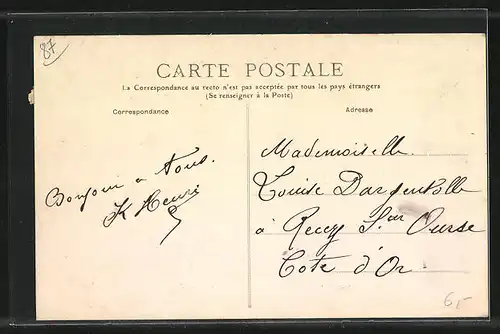 87
CARTE POSTALE
La Correspondance au recto n'est pas acceptée par tous les pays étrangers
(Se renseigner à la Poste)
Correspondance
Adresse
Bonjour a tous.
K Henri
Mademoiselle
Louise Dargentolle
à Recey S.ur Ourse
Cote d'Or.